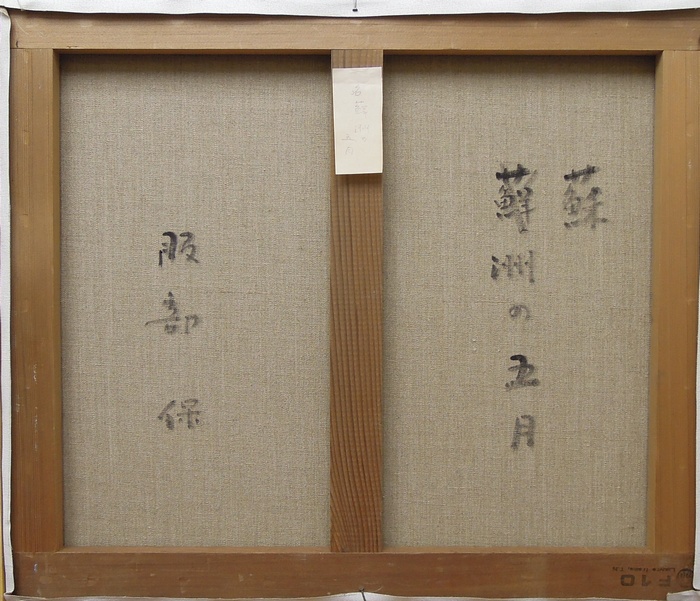 蘇
蘚洲の五月
服部 保
F10